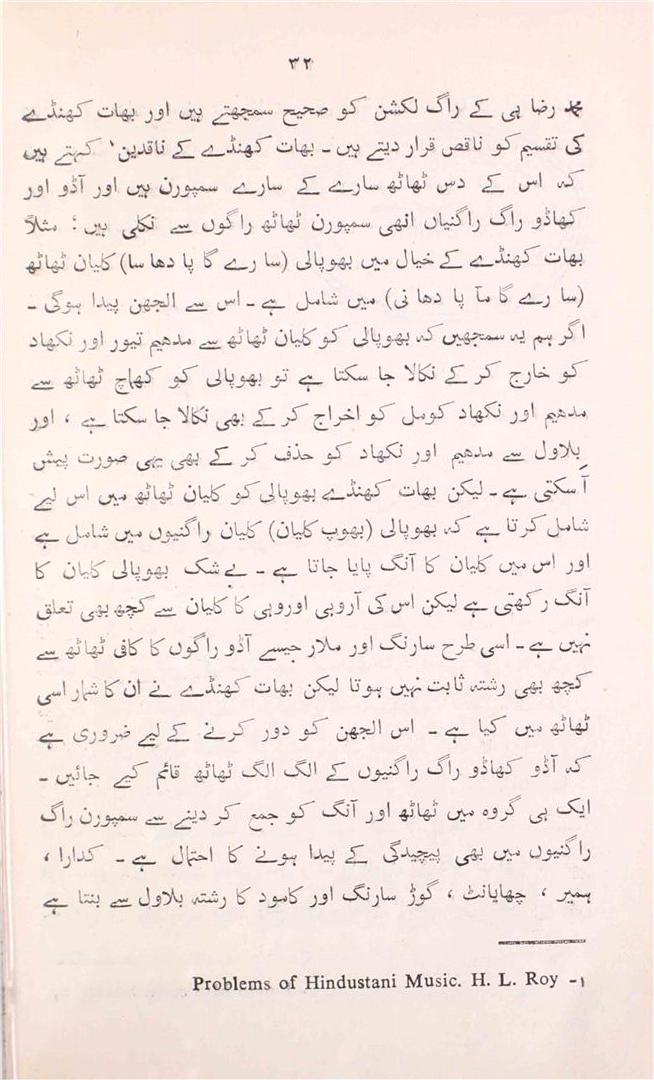 ۳۲
محمد رضا ہی کے راگ لکشن کو صحیح سمجھتے ہیں اور بھات کھنڈے
کی تقسیم کو ناقص قرار دیتے ہیں ۔ بھات کھنڈے کے ناقدین۱ کہتے ہیں
کہ اس کے دس ٹھاٹھ سارے کے سارے سمپورن ہیں اور آڈو اور
کھاڈو راگ راگنیاں انھی سمپورن ٹھاٹھ راگوں سے نکلی ہیں ؛ مثلاً
بھات کھنڈے کے خیال میں بھوپالی (سا رے گا پا دھا سا) کلیان ٹھاٹھ
(سا رے گا مآ پا دھا نی) میں شامل ہے ۔ اس سے الجھن پیدا ہوگی ۔
اگر ہم یہ سمجھیں کہ بھوپالی کو کلیان ٹھاٹھ سے مدھیم تیور اور نکھاد
کو خارج کر کے نکالا جا سکتا ہے تو بھوپالی کو کھماچ ٹھاٹھ سے
مدھیم اور نکھاد کومل کو اخراج کر کے بھی نکالا جا سکتا ہے ، اور
بِلاول سے مدھیم اور نکھاد کو حذف کر کے بھی یہی صورت پیش
آ سکتی ہے ۔ لیکن بھات کھنڈے بھوپالی کو کلیان ٹھاٹھ میں اس لیے
شامل کرتا ہے کہ بھوپالی (بھوپ کلیان) کلیان راگنیوں میں شامل ہے
اور اس میں کلیان کا آنگ پایا جاتا ہے ۔ بے شک بھوپالی کلیان کا
آنگ رکھتی ہے لیکن اس کی آروہی اوروہی کا کلیان سے کچھ بھی تعلق
نہیں ہے ۔ اسی طرح سارنگ اور ملار جیسے آڈو راگوں کا کافی ٹھاٹھ سے
کچھ بھی رشتہ ثابت نہیں ہوتا لیکن بھات کھنڈے نے ان کا شمار اسی
ٹھاٹھ میں کیا ہے ۔ اس الجھن کو دور کرنے کے لیے ضروری ہے
کہ آڈو کھاڈو راگ راگنیوں کے الگ الگ ٹھاٹھ قائم کیے جائیں ۔
ایک ہی گروہ میں ٹھاٹھ اور آنگ کو جمع کر دینے سے سمپورن راگ
راگنیوں میں بھی پیچیدگی کے پیدا ہونے کا احتمال ہے ۔ کدارا ،
ہمیر ، چھایانٹ ، گوڑ سارنگ اور کامود کا رشتہ بلاول سے بنتا ہے
۱- Problems of Hindustani Music. H. L. Roy